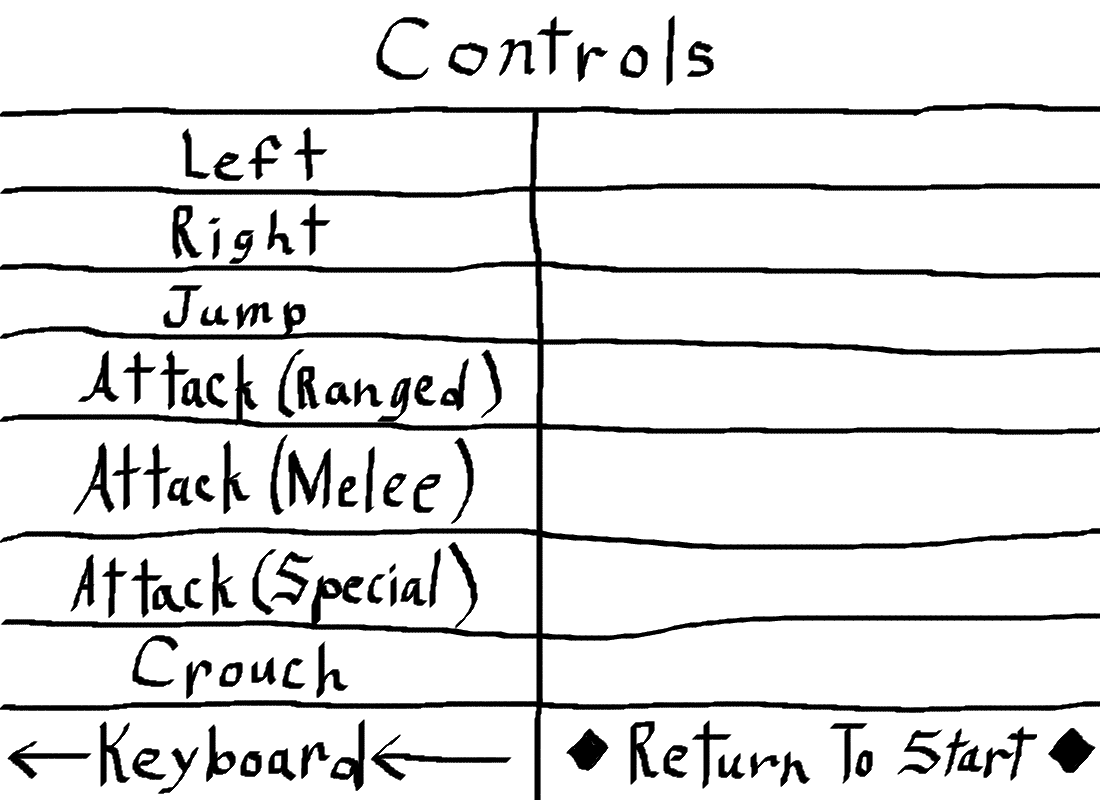 Controls
Left
Right
Jump
Attack (Ranged)
Attack (Melee)
Attack (Special)
Crouch
←Keyboard← ◆ Return To Start ◆